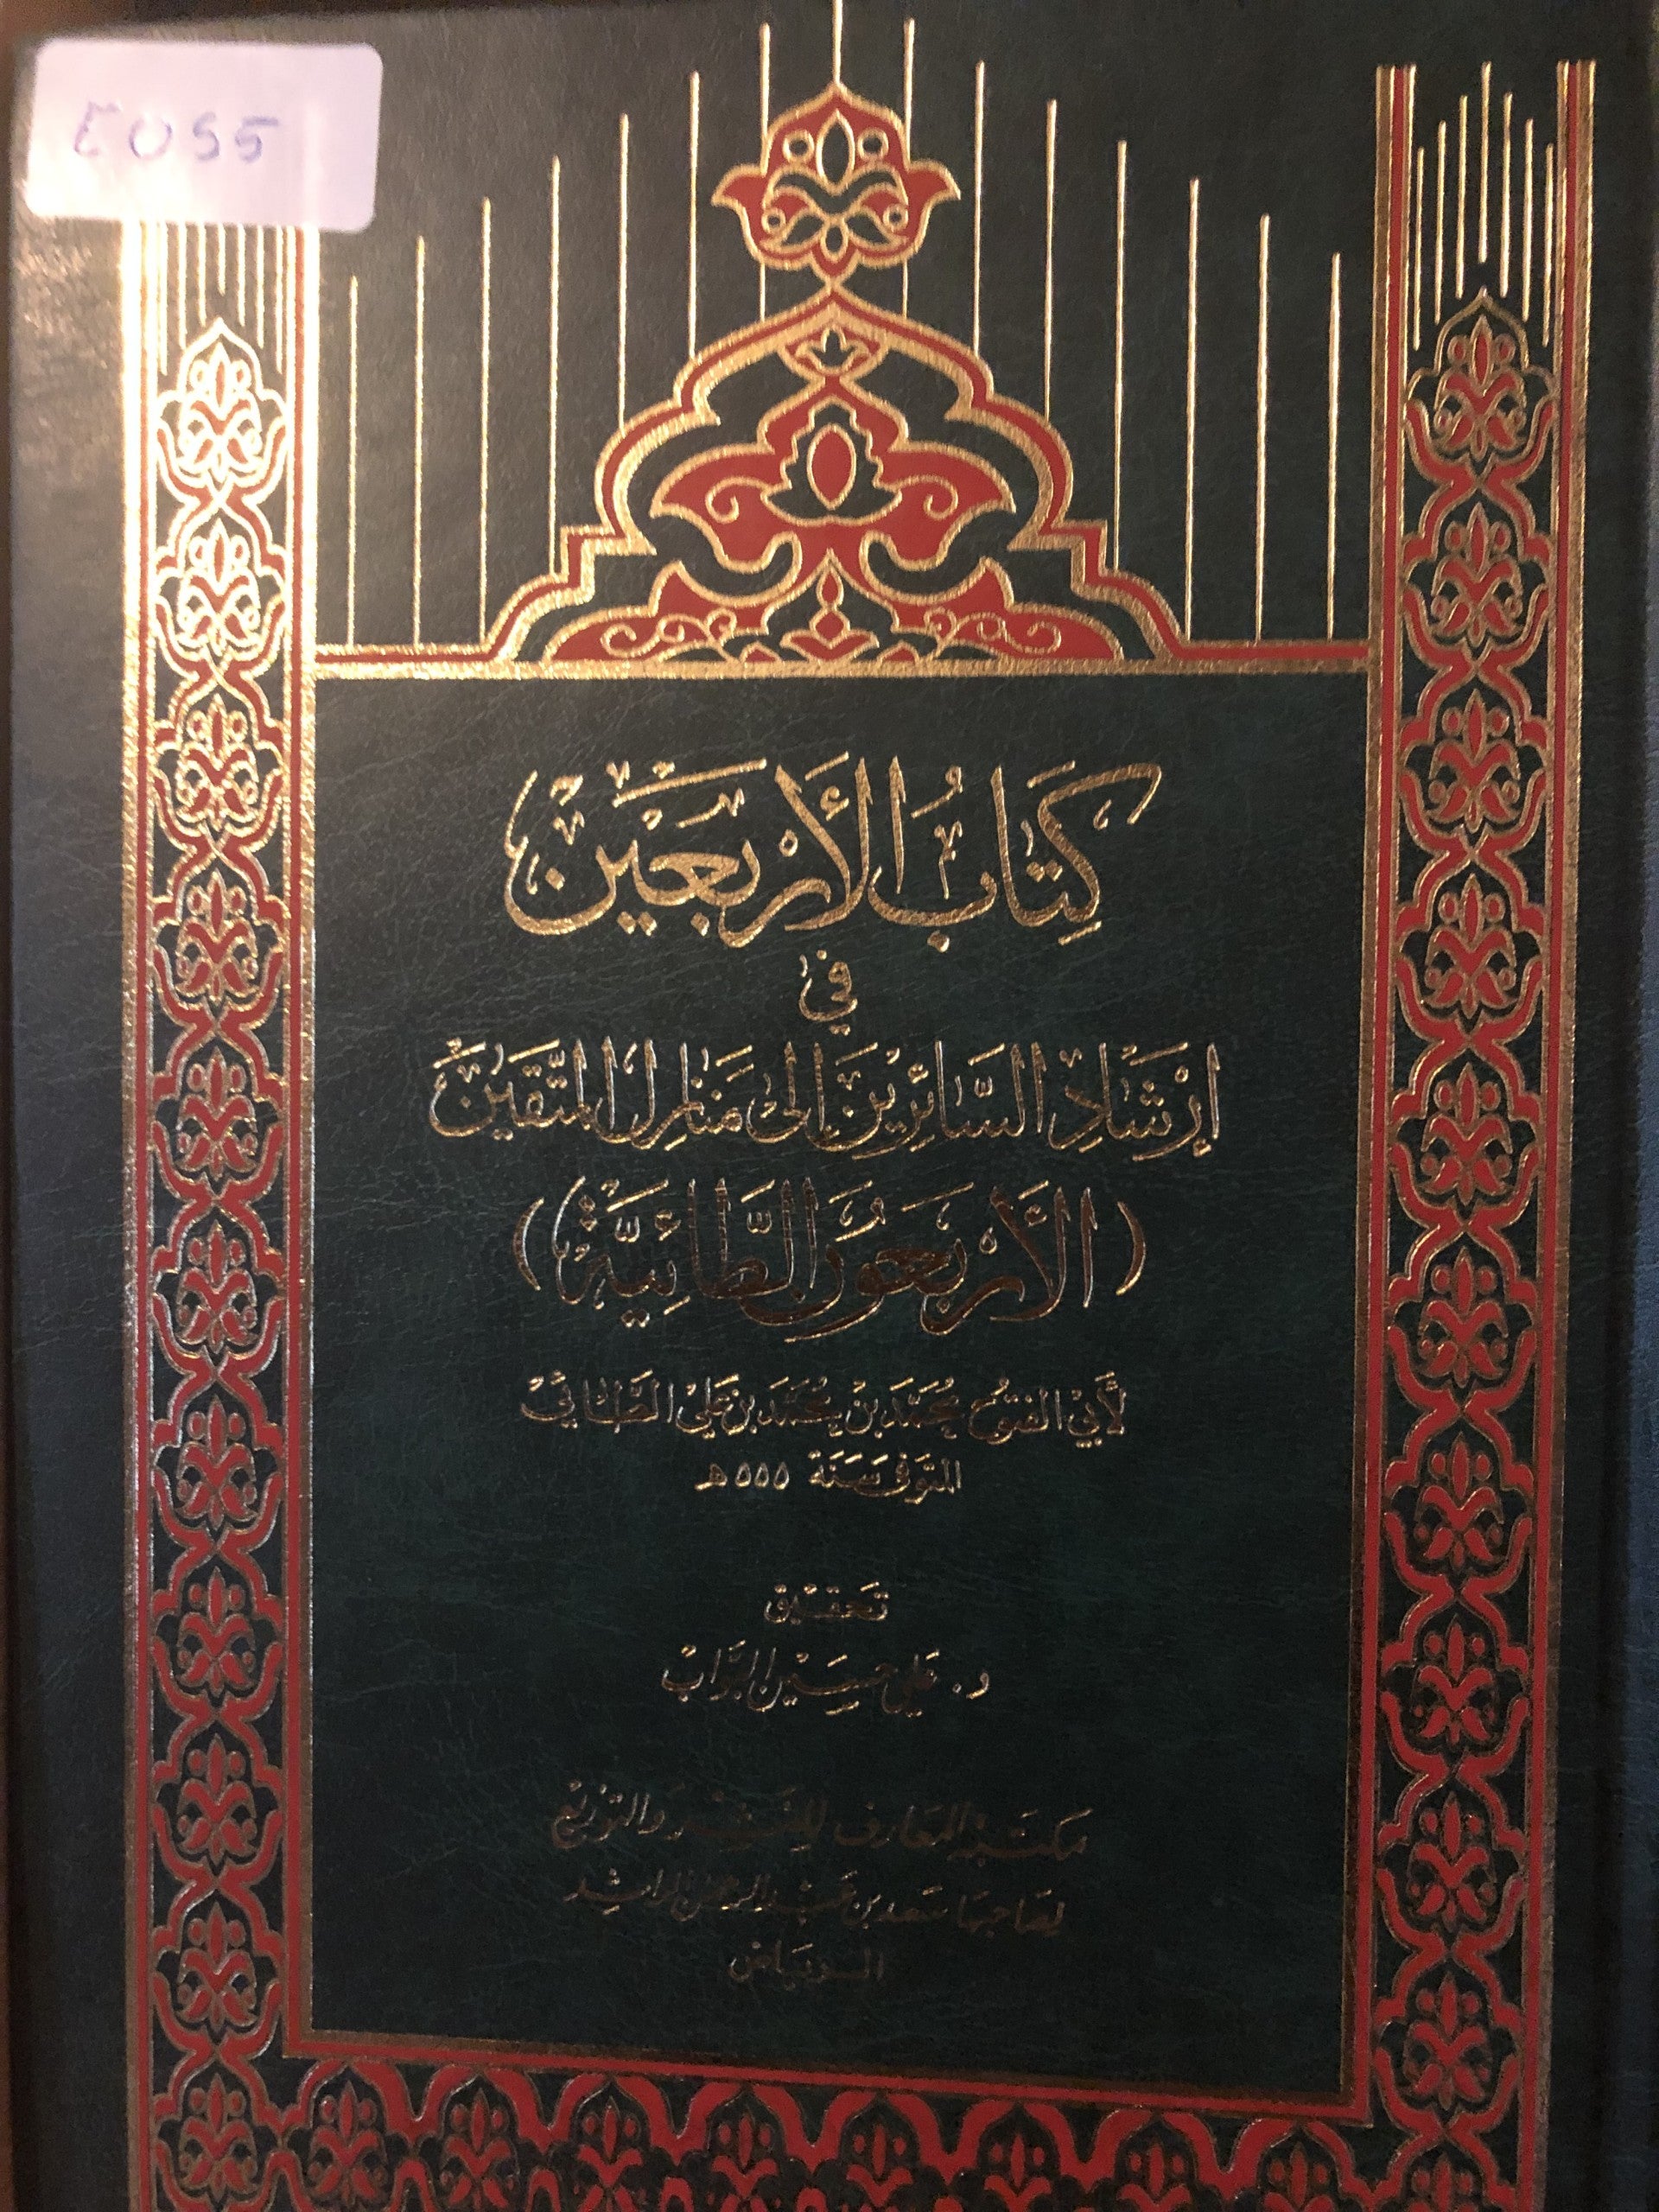 E055
كِتَابُ الأَرْبَعَيْن
في
إِرْشَادِ السَّائِرِينَ إِلَى مَنَازِلِ المُتَّقِينَ
(الأَرْبَعُونَ الطَّائِيَّة)
لأَبِي الفتُوح مُحَمَّد بْن مُحَمَّد بن عَلِي الطَّائِي
المتَوفى سَنَة ٥٥٥ هـ
تَحقِيق
د. عَلي حسَين البَوَّاب
مكتَبة المعَارف للنَشر والتوزيع
لصَاحبهَا سَعد بن عَبد الرحمن الراشد
الريَاض